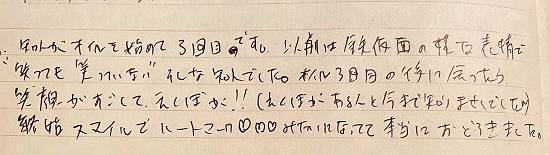 知人がオイルを始めて3回目です。以前は鉄仮面の様な表情で
笑っても"笑っていない"そんな知人でした。オイル3回目の後に会ったら
笑顔がすごくて、えくぼが!!(えくぼがある人と今まで知りませんでした)
終始スマイルでハートマーク♡♡♡みたいになってて本当におどろきました。